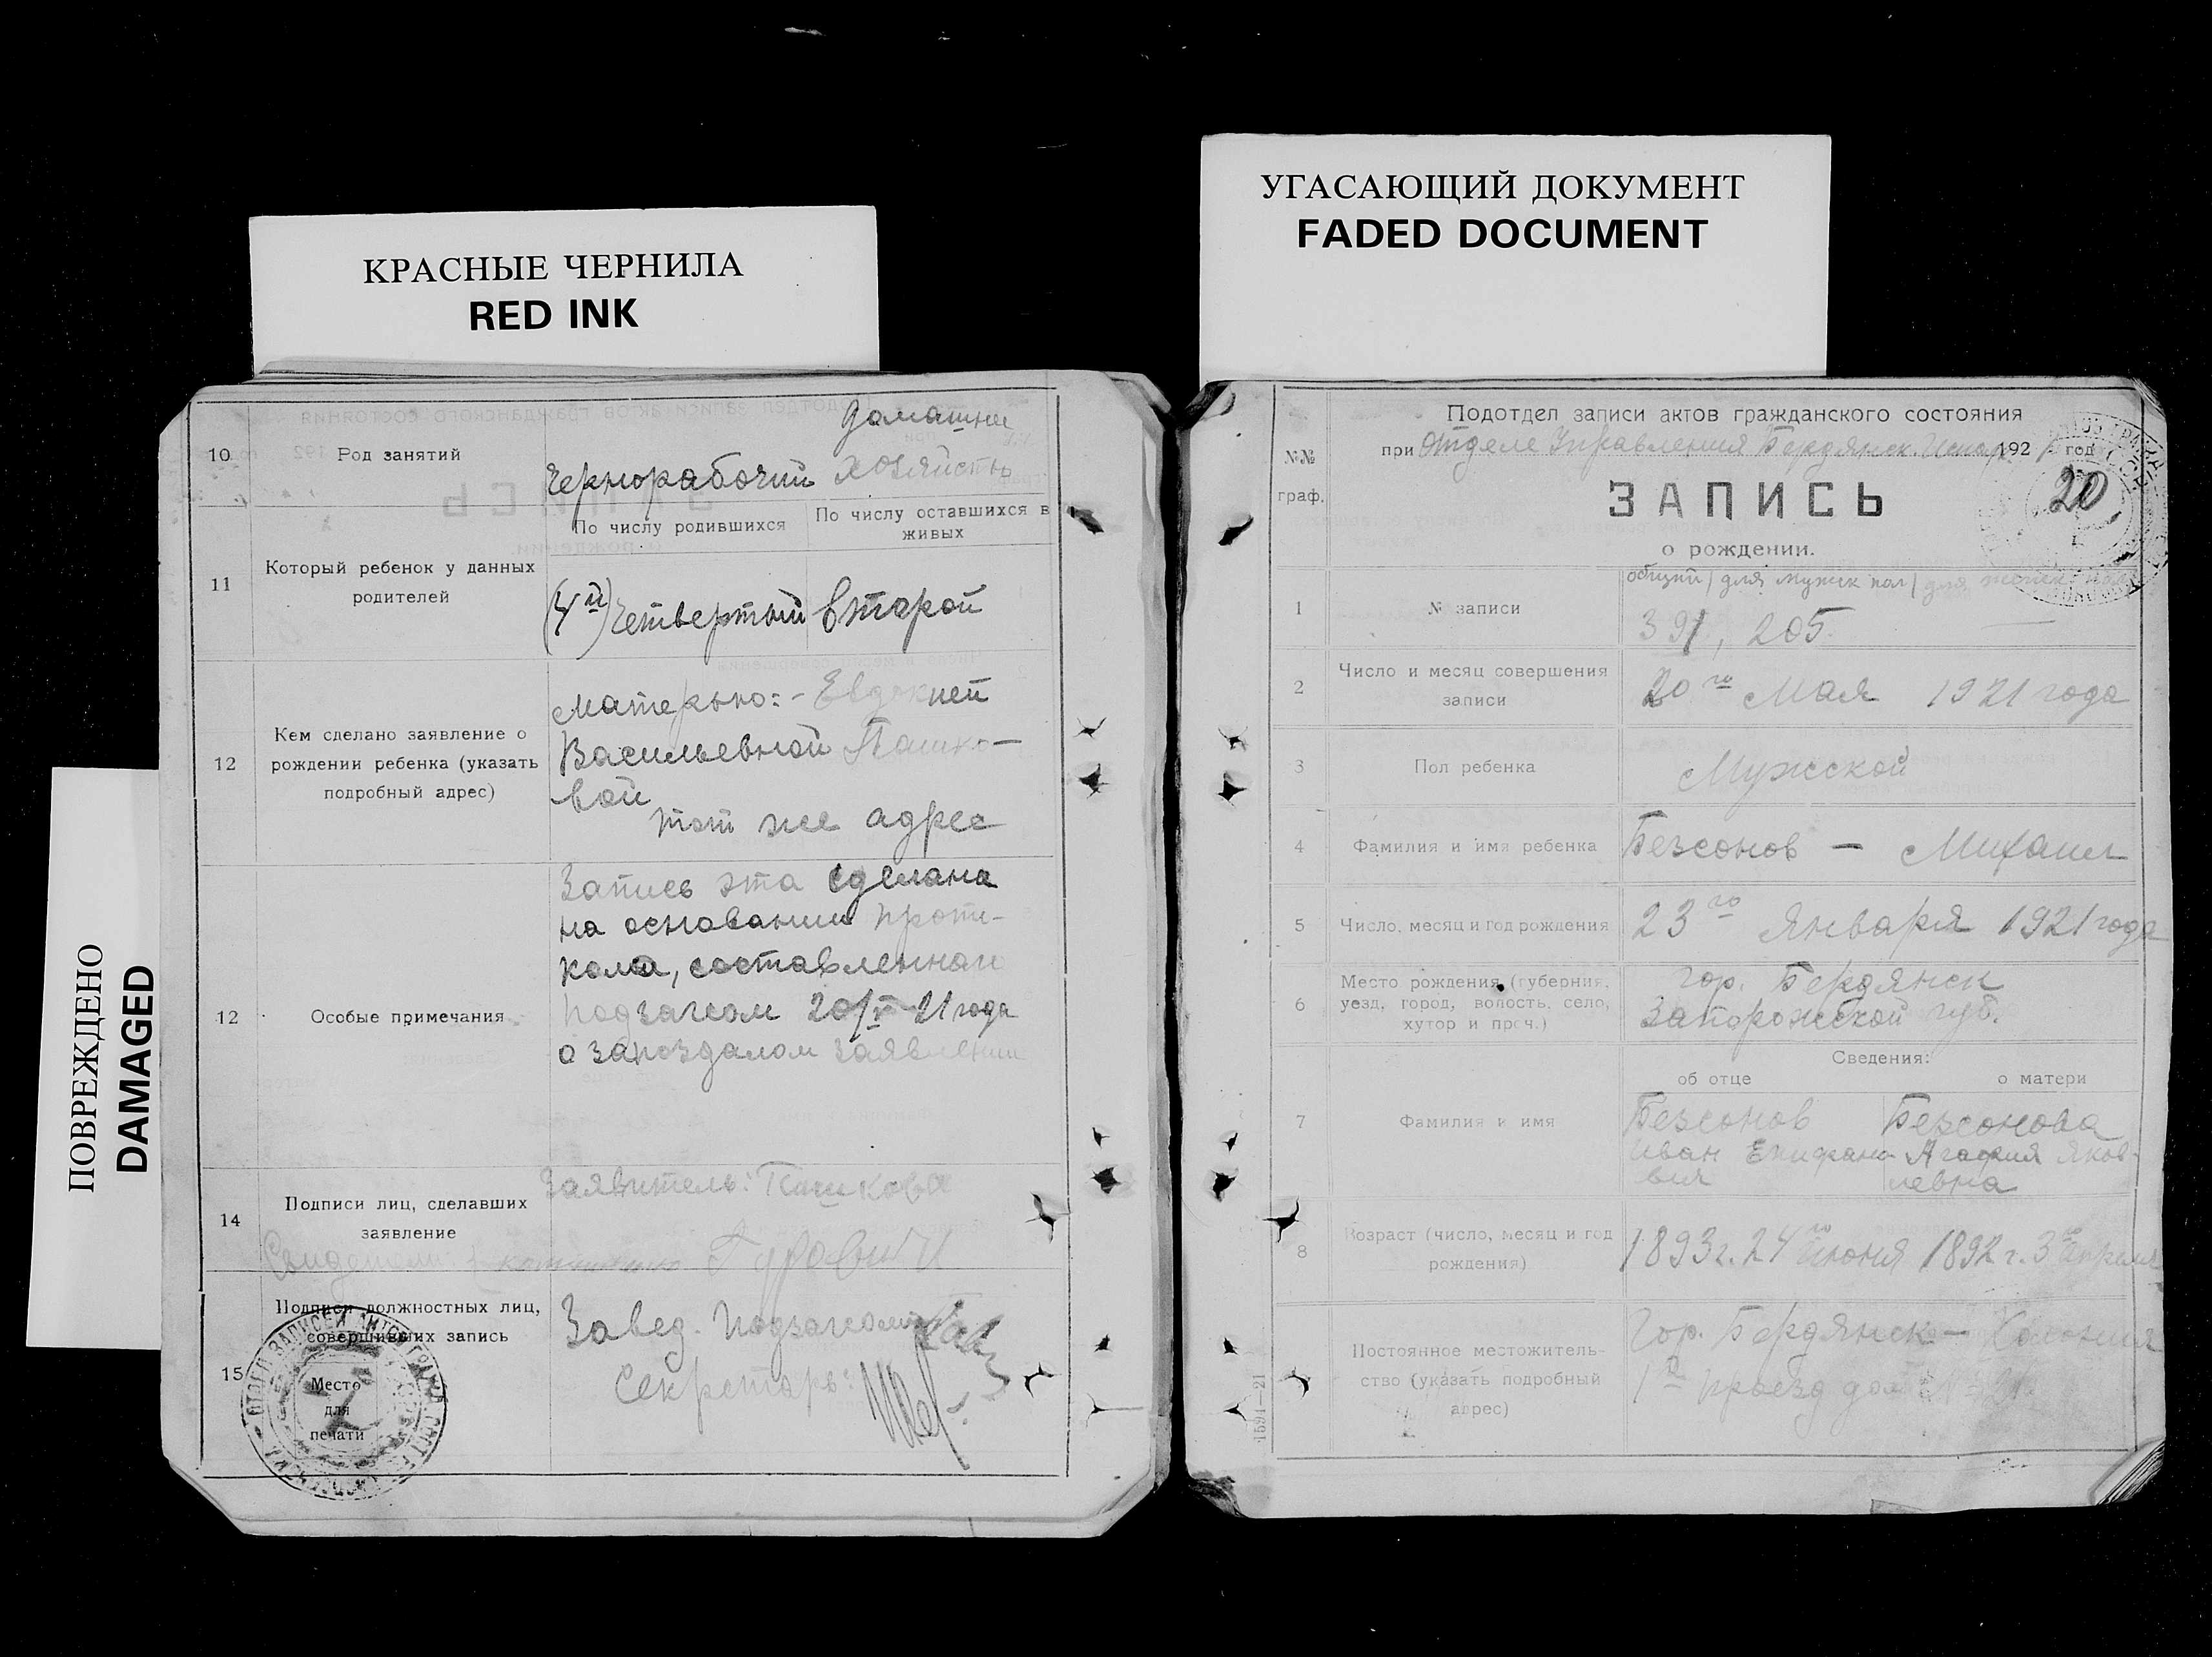 КРАСНЫЕ ЧЕРНИЛА
RED INK
УГАСАЮЩИЙ ДОКУМЕНТ
FADED DOCUMENT
ПОВРЕЖДЕНО
DAMAGED
10
Род занятий
Чернорабочий
домашнее
хозяйство
11
Который ребенок у данных
родителей
По числу родившихся
По числу оставшихся в
живых
(4й) Четвертый
второй
12
Кем сделано заявление о
рождении ребенка (указать
подробный адрес)
Матерью:- Евдокией
Васильевной Пашко-
вой
тот же адрес
12
Особые примечания
Запись эта сделана
на основании прото-
кола, составленнаго
подзагсом 20/V-21 года
о запоздалом заявлении
14
Подписи лиц, сделавших
заявление
Заявитель: Пашкова
15
Подписи должностных лиц,
совершивших запись
Место
для
печати
Завед. Подзагсом
Секретарь:
№№
граф.
Подотдел записи актов гражданского состояния
при Отделе Управления Бердянск. Испол. 1921 год
20
ЗАПИСЬ
о рождении.
1
№ записи
общий / для мужск пол / для женск пол
391, 205
2
Число и месяц совершения
записи
20го Мая 1921 года
3
Пол ребенка
Мужской
4
Фамилия и имя ребенка
Безсонов — Михаил
5
Число, месяц и год рождения
23го Января 1921 года
6
Место рождения (губерния,
уезд, город, волость, село,
хутор и проч.)
гор. Бердянск
Запорожской губ.
Сведения:
об отце
о матери
7
Фамилия и имя
Безсонов
Иван Епифано-
вич
Безсонова
Агафия Яков-
левна
8
Возраст (число, месяц и год
рождения)
1893 г. 24го июня
1892 г. 3го апреля
Постоянное местожитель-
ство (указать подробный
адрес)
Гор. Бердянск — Колония
1й проезд дом №
1591—21